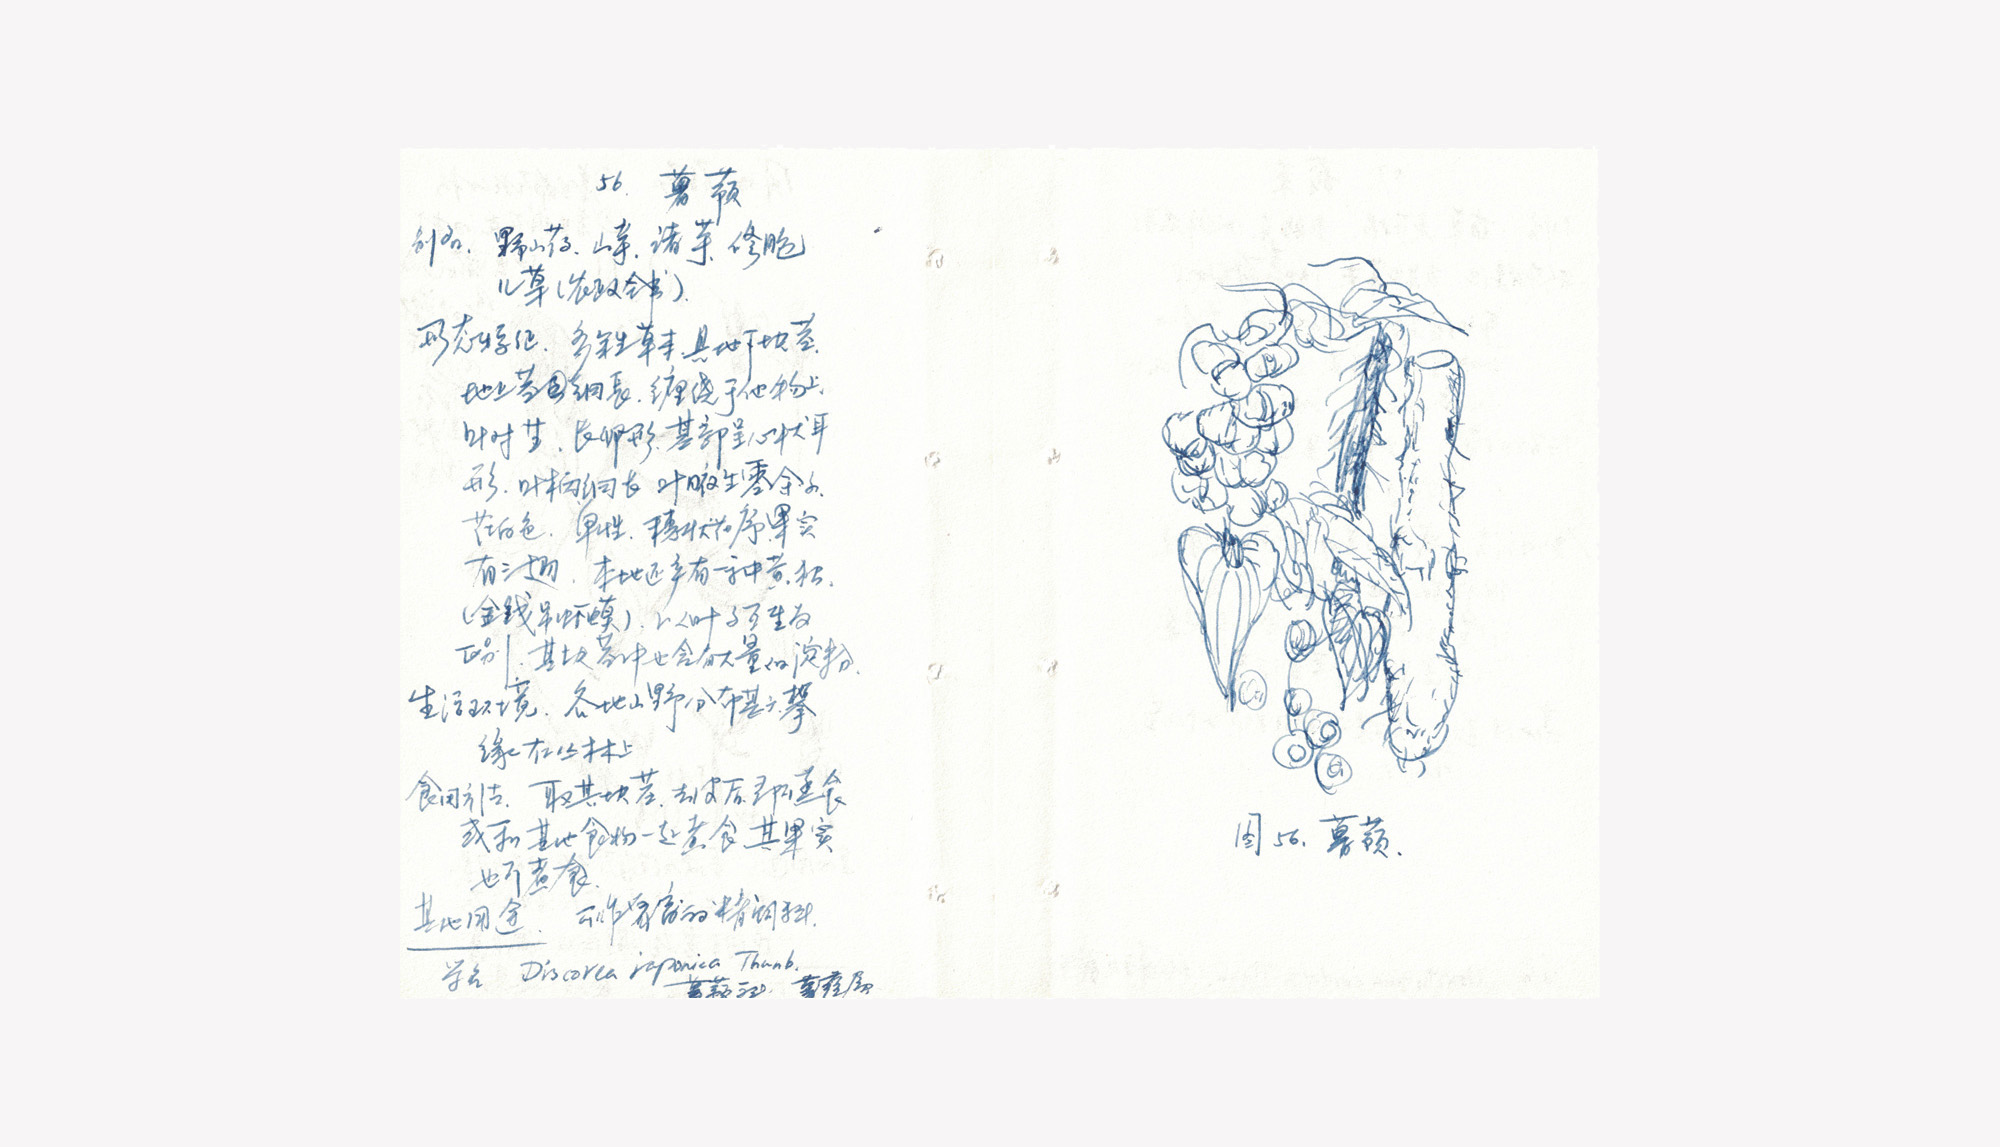 56. 薯蓣
别名. 野山药. 山芋. 诸芋. 修脆
儿草(农政全书).
形态特征. 多年生草本. 具地下块茎.
地上茎圆细長. 缠绕于他物上.
叶对生. 长卵形. 基部呈心状耳
形. 叶柄细长 叶腋生零余子.
花白色. 单性. 穗状花序. 果实
有三翅. 本地还产有一种黄独.
(金钱吊虾蟆).
区别. 其块茎中也含有大量的淀粉.
生活环境. 各地山野分布甚广. 攀
缘在丛林上
食用方法. 取其块茎. 去皮后即可蒸食
或和其他食物一起煮食. 其果实
也可煮食.
其他用途. 可作家畜的精饲料.
学名 Discorea japonica Thunb.
薯蓣科. 薯蓣属
图 56. 薯蓣.